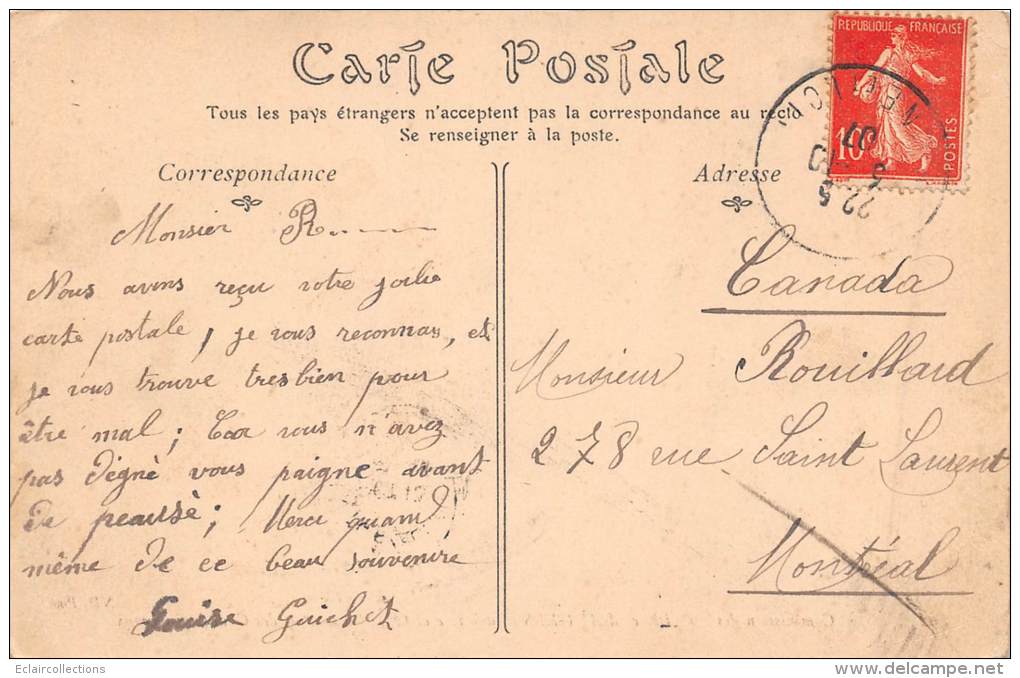 Carte Postale
Tous les pays étrangers n'acceptent pas la correspondance au recto
Se renseigner à la poste.
Correspondance
Monsieur R.......
Nous avons reçu votre jolie
carte postale, je vous reconnais, et
je vous trouve tres bien pour
être mal; Car vous n'avez
pas dégné vous paigne avant
de peausè; Merci quand
même de ce beau souvenire
Louise Guichet
Adresse
Canada
Monsieur Rouillard
278 rue Saint Laurent
Montréal
REPUBLIQUE FRANÇAISE
10
POSTES
22 5
07
Eclaircollections
delcampe.net